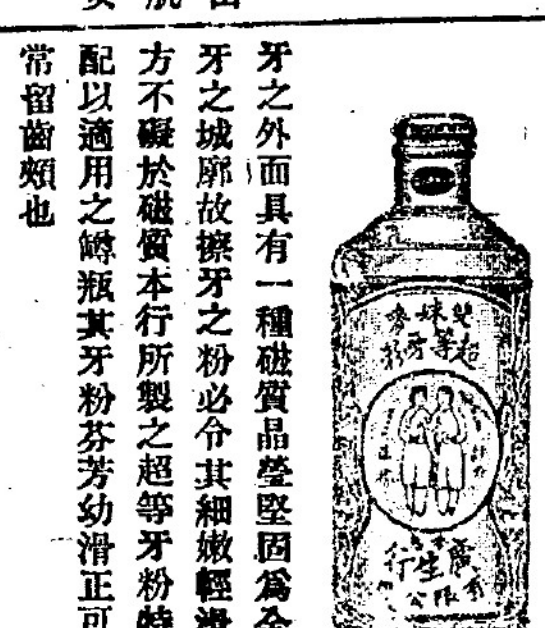 牙之外面具有一種磁質品瑩堅固爲全
牙之城廓故擦牙之粉必令其細嫩輕滑
方不礙於磁質本行所製之超等牙粉特
配以適用之罇瓶其牙粉芬芳幼滑正可
常留齒頰也
雙妹嘜
超等牙粉
廣生行
有限公